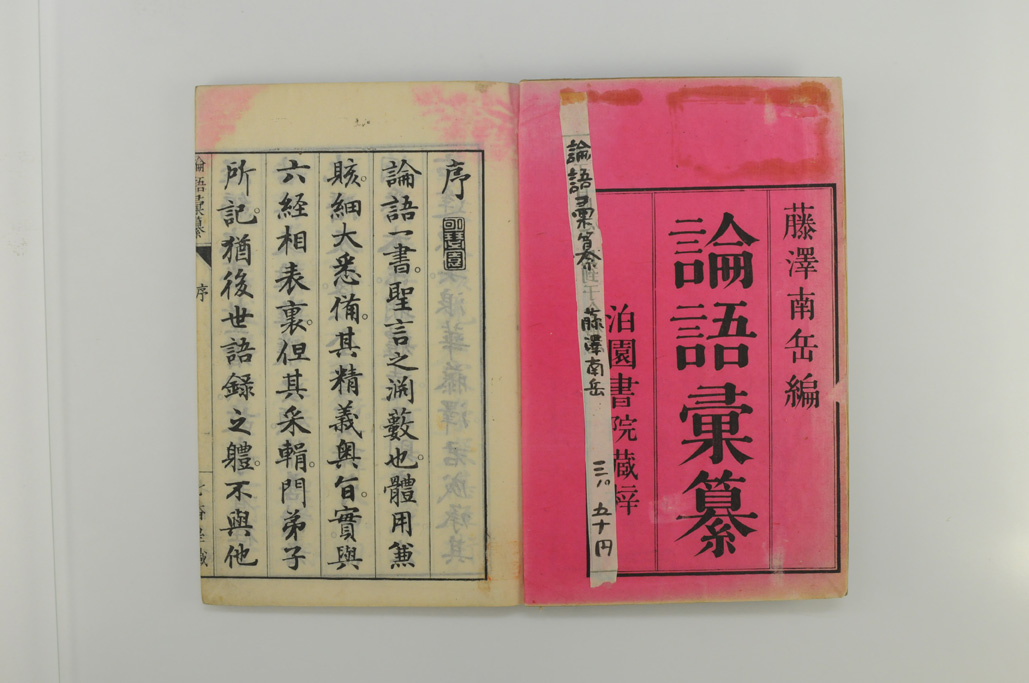 藤澤南岳編
論語彙纂
泊園書院藏梓
論語彙纂 藤澤南岳 三。五十円
序
論語一書。聖言之淵藪也。體用兼
賅。細大悉備。其精義奥旨。實與
六経相表裏。但其采輯。門弟子
所記。猶後世語錄之體。不與他
論語彙纂 序